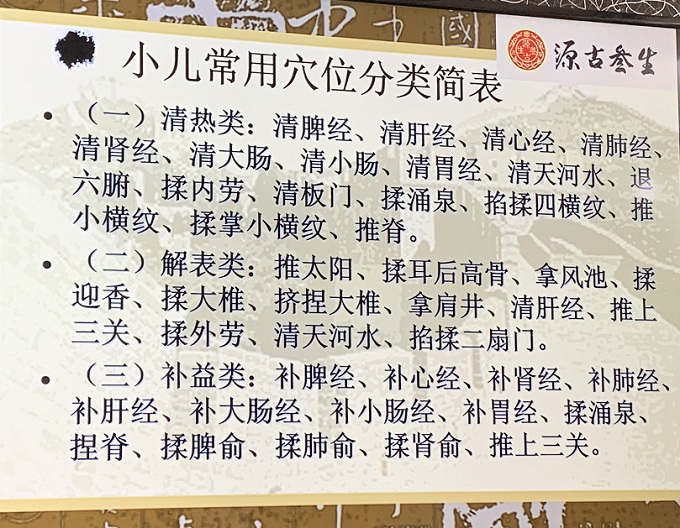 源古叁生
小儿常用穴位分类简表
• （一）清热类：清脾经、清肝经、清心经、清肺经、
清肾经、清大肠、清小肠、清胃经、清天河水、退
六腑、揉内劳、清板门、揉涌泉、掐揉四横纹、推
小横纹、揉掌小横纹、推脊。
• （二）解表类：推太阳、揉耳后高骨、拿风池、揉
迎香、揉大椎、挤捏大椎、拿肩井、清肝经、推上
三关、揉外劳、清天河水、掐揉二扇门。
• （三）补益类：补脾经、补心经、补肾经、补肺经、
补肝经、补大肠经、补小肠经、补胃经、揉涌泉、
捏脊、揉脾俞、揉肺俞、揉肾俞、推上三关。